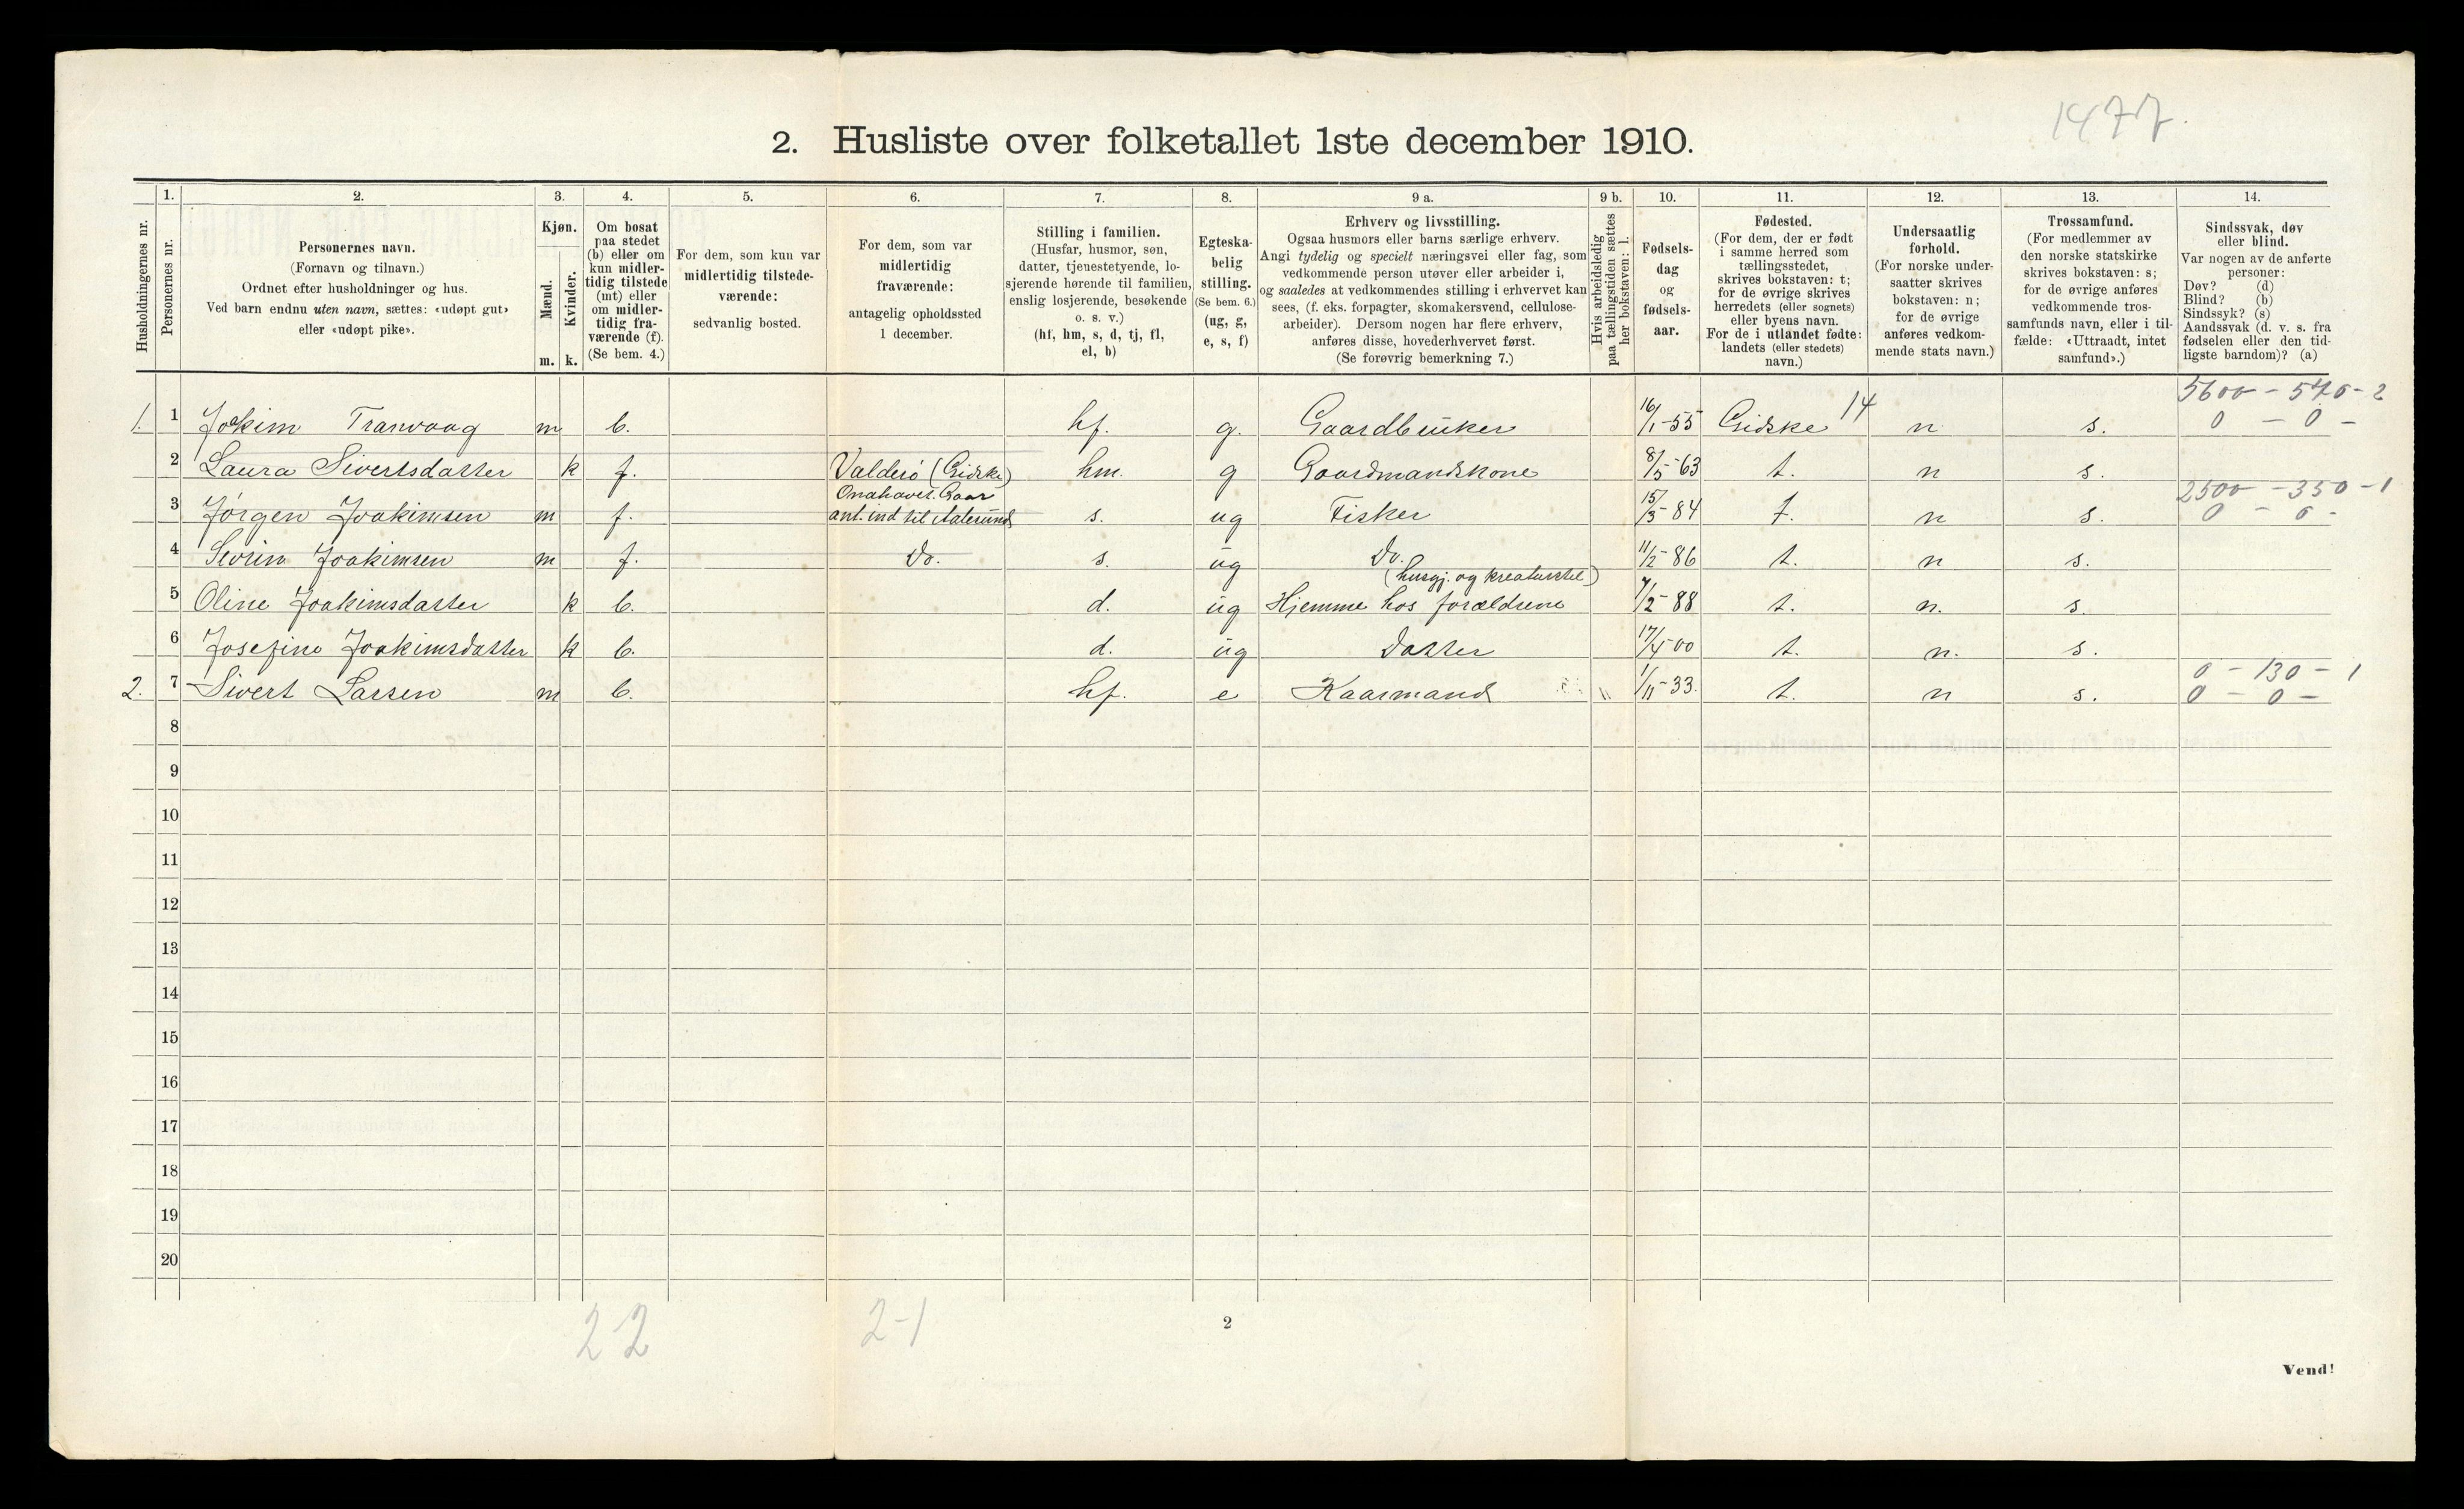 1477.
2. Husliste over folketallet 1ste december 1910.
Husholdningernes nr.
1. Personernes nr.
2. Personernes navn.
(Fornavn og tilnavn.)
Ordnet efter husholdninger og hus.
Ved barn endnu uten navn, sættes: «udøpt gut»
eller «udøpt pike».
3. Kjøn.
Mænd. m.
Kvinder. k.
4. Om bosat
paa stedet
(b) eller om
kun midler-
tidig tilstede
(mt) eller
om midler-
tidig fra-
værende (f).
(Se bem. 4.)
5. For dem, som kun var
midlertidig tilstede-
værende:
sedvanlig bosted.
6. For dem, som var
midlertidig
fraværende:
antagelig opholdssted
1 december.
7. Stilling i familien.
(Husfar, husmor, søn,
datter, tjenestetyende, lo-
sjerende hørende til familien,
enslig losjerende, besøkende
o. s. v.)
(hf, hm, s, d, tj, fl,
el, b)
8. Egteska-
belig
stilling.
(Se bem. 6.)
(ug, g,
e, s, f)
9 a. Erhverv og livsstilling.
Ogsaa husmors eller barns særlige erhverv.
Angi tydelig og specielt næringsvei eller fag, som
vedkommende person utøver eller arbeider i,
og saaledes at vedkommendes stilling i erhvervet kan
sees, (f. eks. forpagter, skomakersvend, cellulose-
arbeider). Dersom nogen har flere erhverv,
anføres disse, hovederhvervet først.
(Se forøvrig bemerkning 7.)
9 b. Hvis arbeidsledig
paa tællingstiden sættes
her bokstaven: l.
10. Fødsels-
dag
og
fødsels-
aar.
11. Fødested.
(For dem, der er født
i samme herred som
tællingsstedet,
skrives bokstaven: t;
for de øvrige skrives
herredets (eller sognets)
eller byens navn.
For de i utlandet fødte:
landets (eller stedets)
navn.)
12. Undersaatlig
forhold.
(For norske under-
saatter skrives
bokstaven: n;
for de øvrige
anføres vedkom-
mende stats navn.)
13. Trossamfund.
(For medlemmer av
den norske statskirke
skrives bokstaven: s;
for de øvrige anføres
vedkommende tros-
samfunds navn, eller i til-
fælde: «Uttraadt, intet
samfund».)
14. Sindssvak, døv
eller blind.
Var nogen av de anførte
personer:
Døv? (d)
Blind? (b)
Sindssyk? (s)
Aandssvak (d. v. s. fra
fødselen eller den tid-
ligste barndom)? (a)
5600 - 570 - 2
1. 1 Joakim m b. hf. g. Gaardbruker 16/1-55 Gidske 14 n s. 0 - 0 -
2 Laura Sivertsdatter k f. Valderö (Gidske) hm. g Gaardmandskone 8/5-63 t. n s.
2500 - 350 - 1
3 Jörgen Joakimsen m f. Onahavet. ant. ind til Aalesund s. ug Fisker 15/3-84 t. n s. 0 - 0 -
4 Sevrin Joakimsen m f. Do. s. ug Do. 11/2-86 t. n s.
(husgj. og kreaturstel)
5 Oline Joakimsdatter k b. d. ug Hjemme hos forældrene 7/2-88 t. n. s.
6 Josefine Joakimsdatter k b. d. ug Datter 17/4-00 t. n. s.
0 - 130 - 1
2. 7 Sivert Larsen m b. hf. e Kaarmand 1/11-33. t. n s. 0 - 0 -
8
9
10
11
12
13
14
15
16
17
18
19
20
22
2-1
2
Vend!